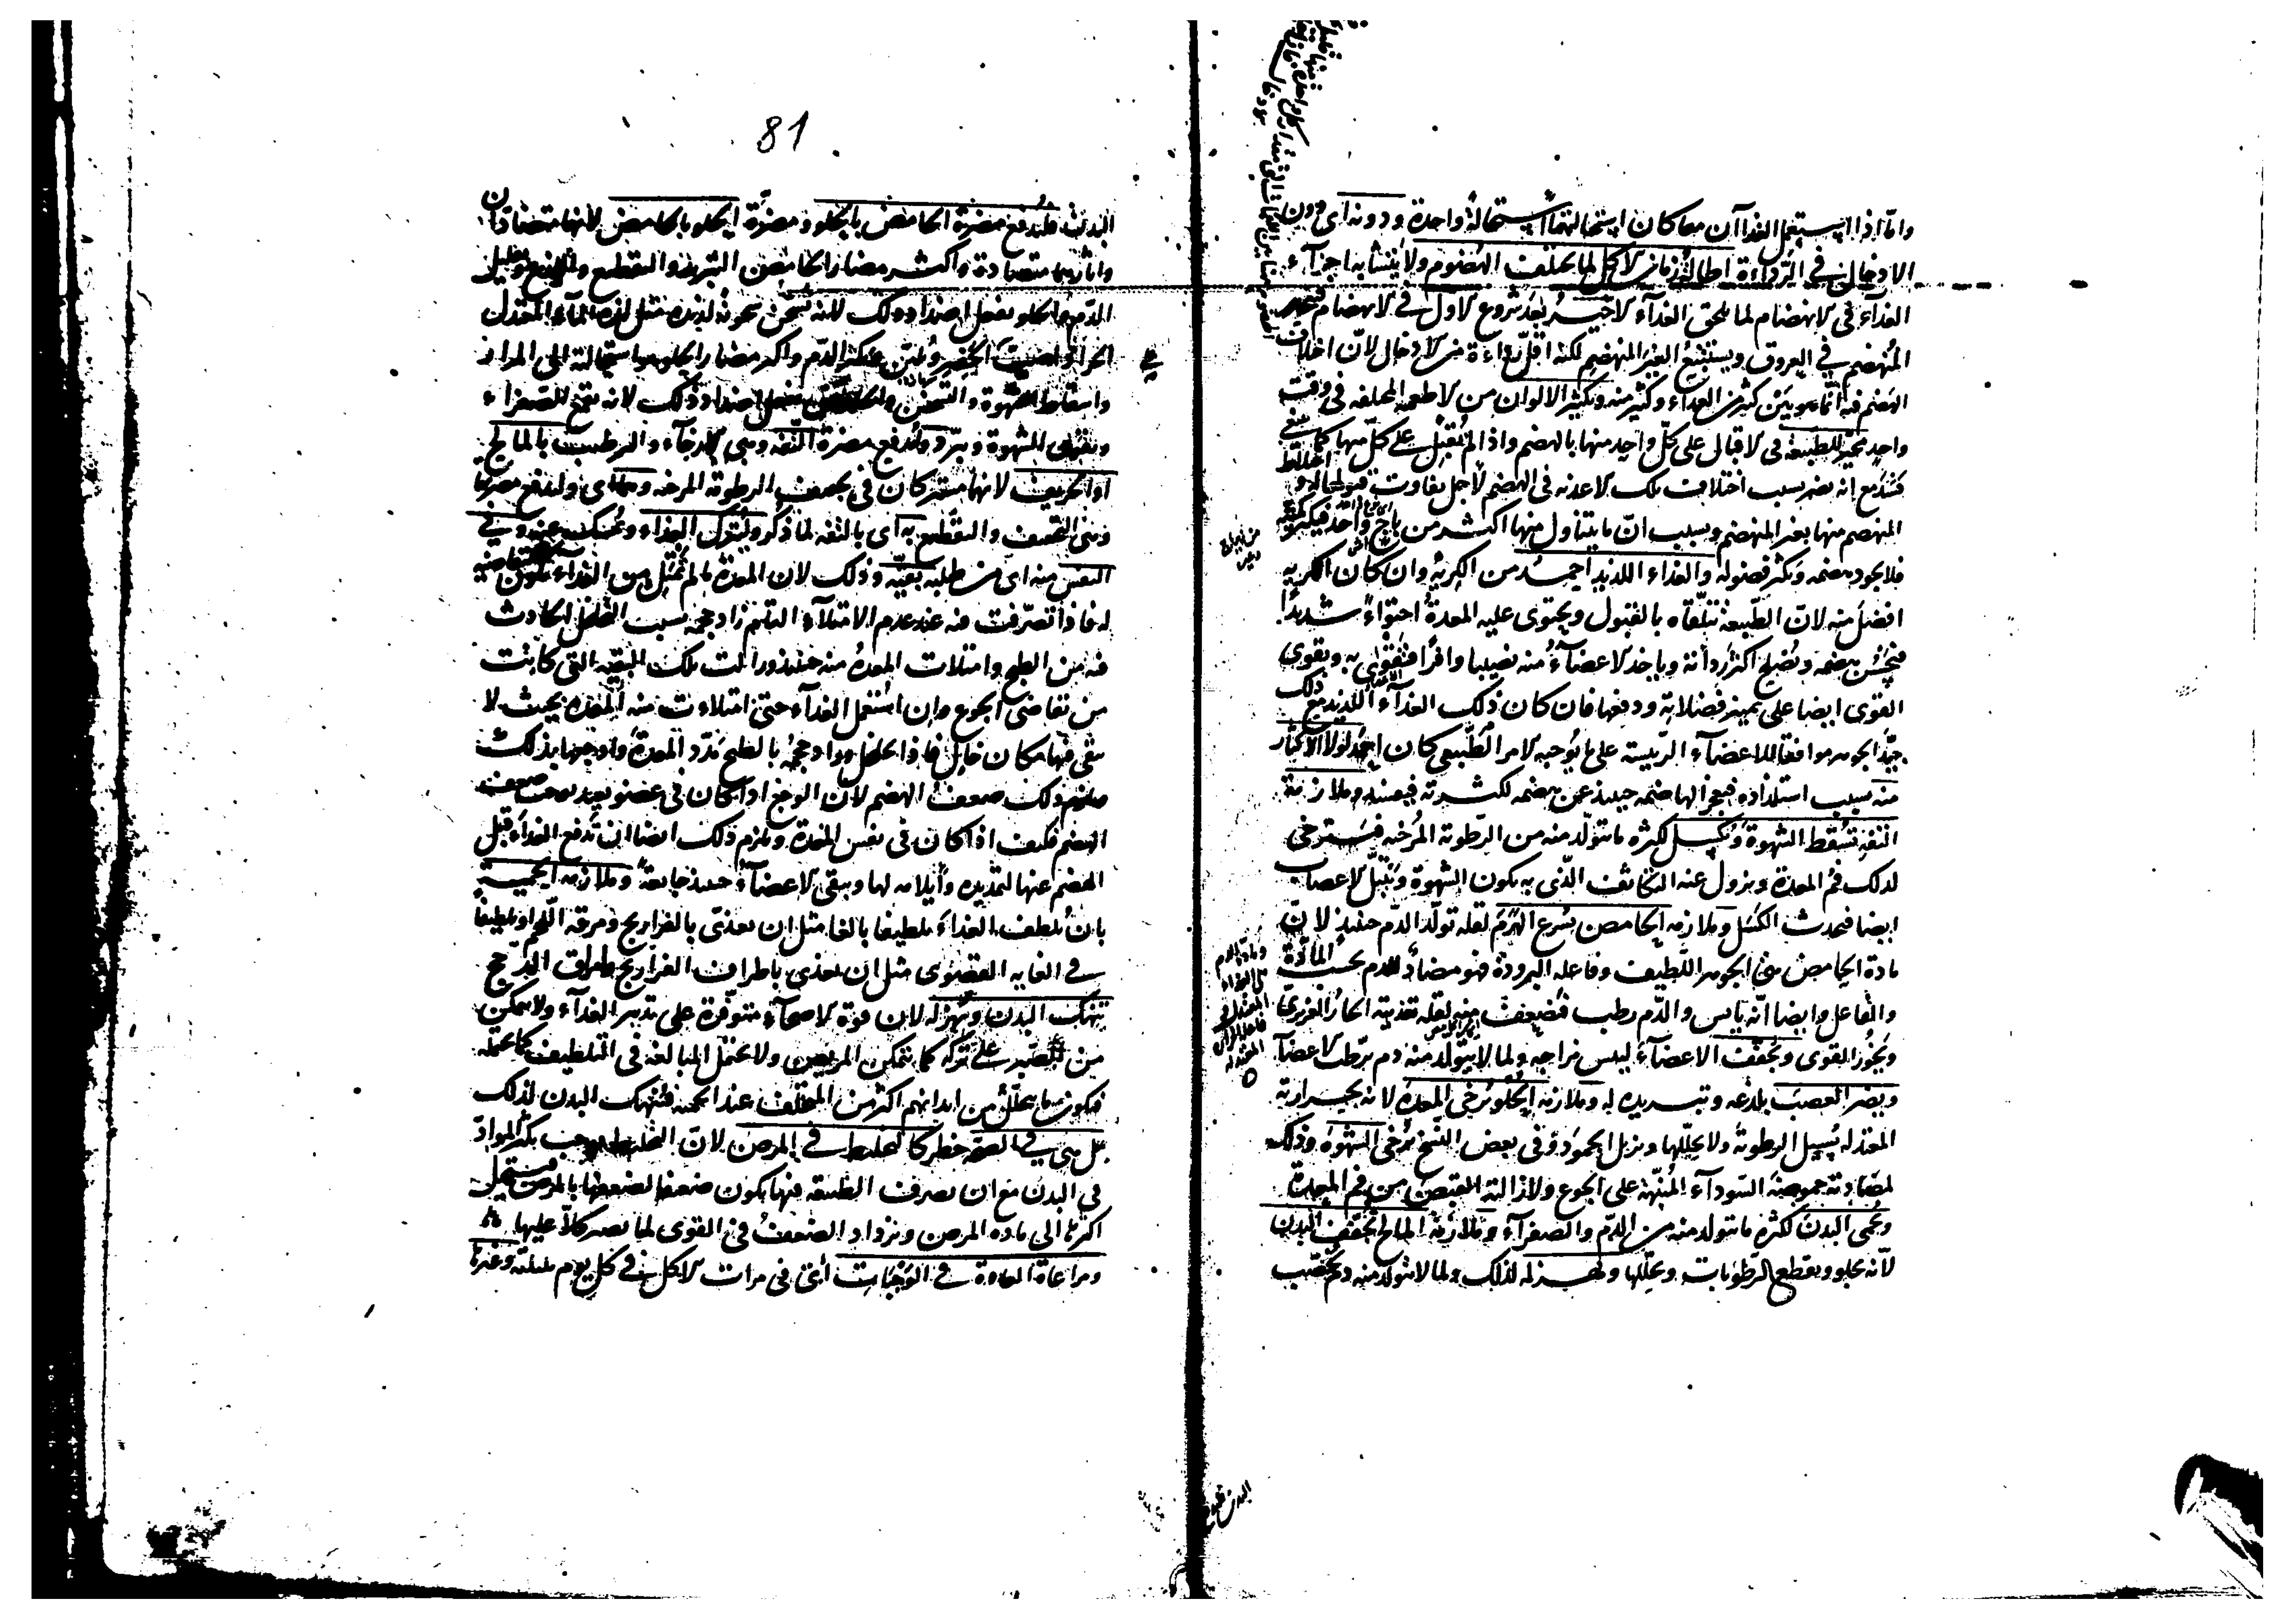 واما اذا استعمل الغذاآن معا كان استحالتهما استحالة واحدة ودونه اى دون
الادخال فى الرداءة اطالة زمان الاكل لما يختلف الهضوم ولا يتشابه اجزاء
الغذاء فى الانهضام لما يلحق الغذاء الاخير بعد شروع الاول فى الانهضام
المنهضم فى العروق ويستتبع الغير المنهضم لكنه اقل رداءة من الادخال لان اختلاف
الهضم فيه انما هو بين كثير من الغذاء وكثير منه وتكثير الالوان من الاطعمة المختلفة فى وقت
واحد محير للطبيعة فى الاقبال على كل واحد منها بالهضم واذا لم تقبل على كل منها كما ينبغى
مع انه يضر بسبب اختلاف تلك الاغذية فى الهضم لاجل تفاوت قبولها له و
المنهضم منها بغير المنهضم وبسبب ان ما يتناول منها اكثر من
فلا يجود هضمه وتكثر فضوله والغذاء اللذيذ احمد من الكريه وان كان الكريه
افضل منه لان الطبيعة تتلقاه بالقبول ويحتوى عليه المعدة احتواء شديدا
فيحسن هضمه ويصلح اكثر رداءته وياخذ الاعضاء منه نصيبا وافرا فتقوى به وتقوى
القوى ايضا على تمييز فضلاته ودفعها فان كان ذلك الغذاء اللذيذ مع ذلك
جيد الجوهر موافقا للاعضاء الرئيسة على ما يوجبه الامر الطبيعى كان احمد لولا الاكثار
منه بسبب استلذاذه فيعجز الهاضمة حينئذ عن هضمه لكثرته فيفسد وملازمة
التفه تسقط الشهوة وتكسل لكثرة ما يتولد منه من الرطوبة المرخية فيسترخى
لذلك فم المعدة ويزول عنه التكاثف الذى به يكون الشهوة ويبتل الاعصاب
ايضا فيحدث الكسل وملازمة الحامض يسرع الهرم لقلة تولد الدم حينئذ لان
مادة الحامض هى الجوهر اللطيف وفاعله البرودة فهو مضاد للدم بحسب المادة
والفاعل وايضا انه يابس والدم رطب فيضعف منه لقلة تغذيته الحار الغريزى
ويخور القوى ويجفف الاعضاء ليبس مزاجه ولما لا يتولد منه دم يرطب الاعضاء
ويضر العصب بلذعه وتبريده له وملازمة الحلو يرخى المعدة لانه بحرارته
المعتدلة يسيل الرطوبة ولا يحللها ويزيل الجمود وفى بعض النسخ يرخى الشهوة وذلك
لمضادته حموضة السوداء المنبهة على الجوع ولازالته القبض من فم المعدة
ويحمى البدن لكثرة ما يتولد منه من الدم والصفراء وملازمة المالح يجفف البدن
لانه يجلو ويقطع الرطوبات ويحللها ويهزله لذلك ولما لا يتولد منه دم يخصب
81
البدن فليدفع مضرة الحامض بالحلو ومضرة الحلو بالحامض لانهما متضادان
واثارهما متضادة واكثر مضار الحامض التبريد والتقطيع واللذع وتقليل
الدم والحلو يفعل اضداد ذلك لانه يسخن سخونة لذيذة مثل لذة الماء المعتدل
الحرارة ويكثر الدم واكثر مضار الحلو هو استحالته الى المرار
واسقاط الشهوة والتسخين والحامض يفعل اضداد ذلك لانه يقمع الصفراء
ويقوى الشهوة ويبرد وليدفع مضرة التفه وهى الارخاء والترطيب بالمالح
او الحريف لانهما مشتركان فى تجفيف الرطوبة المرخية وهما اى وليدفع مضرتهما
وهى التجفيف والتقطيع به اى بالتفه لما ذكر وليترك الغذاء ويمسك عنه وفى
النفس منه اى من طلبه بقية وذلك لان المعدة ما لم تمتل من الغذاء تكون متقاضية
له فاذا تصرفت فيه عند عدم الامتلاء التام زاد حجمه بسبب التخلخل الحادث
فيه من الطبخ وامتلات المعدة منه حينئذ وزالت تلك البقية التى كانت
من تقاضى الجوع وان استعمل الغذاء حتى امتلاءت منه المعدة بحيث لا
يبقى فيها مكان خال فاذا تخلخل وزاد حجمه بالطبخ مدد المعدة واوجعها بذلك
فيلزم ذلك ضعف الهضم لان الوجع اذا كان فى عضو بعيد يوجب ضعف
الهضم فكيف اذا كان فى نفس المعدة ويلزم ذلك ايضا ان تدفع الغذاء قبل
الهضم عنها لتمديده وايلامه لها ويبقى الاعضاء حينئذ جايعة وملازمة الحمية
بان يلطف الغذاء تلطيفا بالغا مثل ان يغذى بالفراريج ومرقة اللحم او تلطيفا
فى الغاية القصوى مثل ان يغذى باطراف الفراريج واطراف الدجج
ينهك البدن ويهزله لان قوة الاصحاء متوفرة على تدبير الغذاء ولا يمكن
من الصبر على تركه كما يتمكن المريض ولا يحتمل المبالغة فى التلطيف كما يحتمله
فيكون ما يتحلل من ابدانهم اكثر من المتخلف عند الحمية فينهك البدن لذلك
بل هى فى الصحة خطر كالتخليط فى المرض لان التخليط يوجب تكثر المواد
فى البدن مع ان تصرف الطبيعة فيها يكون ضعيفا لضعفها بالمرض فيستحيل
اكثرها الى مادة المرض ويزداد الضعف فى القوى لما يصير كلا عليها
ومراعاة العادة فى الوجبات اى فى مرات الاكل فى كل يوم بليلته وغيرها